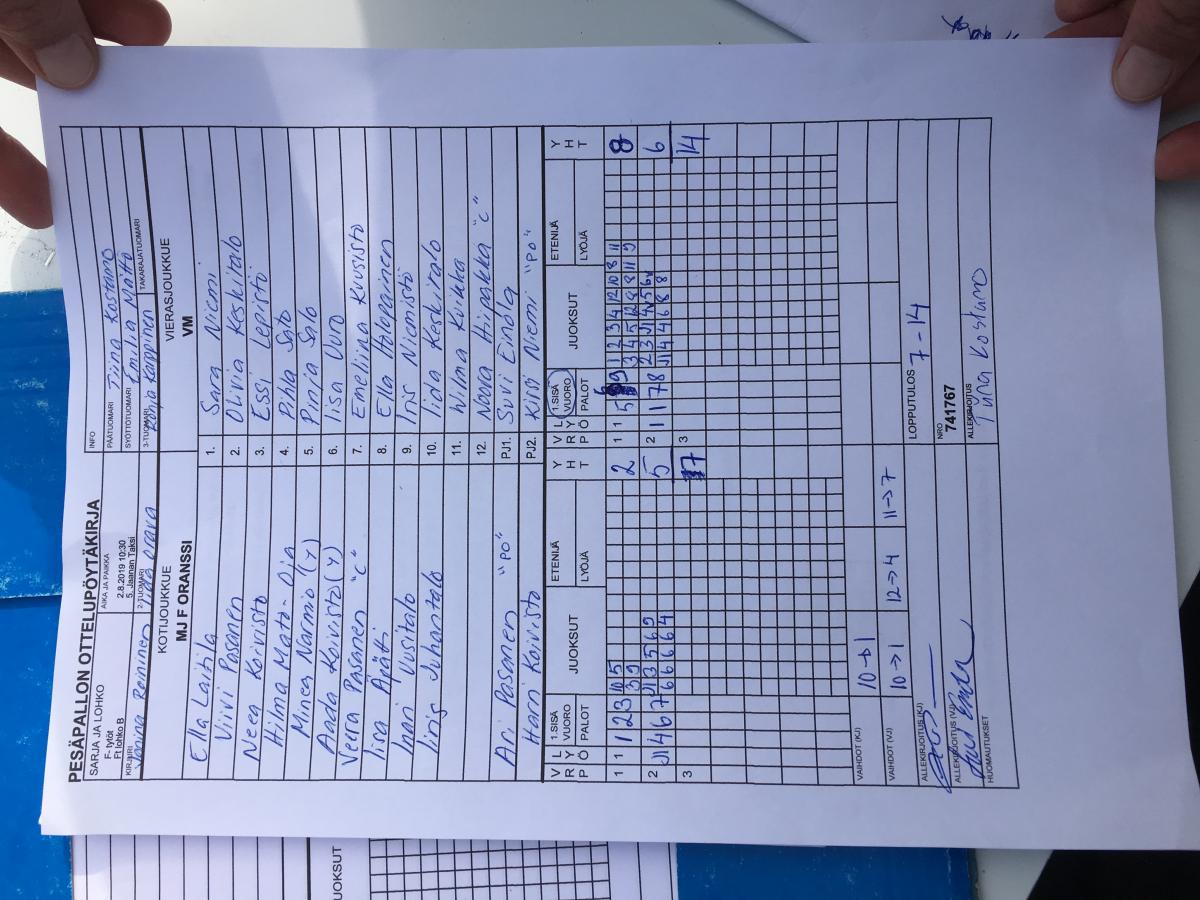 PESÄPALLON OTTELUPÖYTÄKIRJA
SARJA JA LOHKO
F- tytöt
Ft lohko B
AIKA JA PAIKKA
2.8.2019 10:30
5. Jaanan Taksi
INFO
PÄÄTUOMARI Tiina Kostamo
SYÖTTÖTUOMARI Emilia Mättö
KIRJURI
2-TUOMARI
3-TUOMARI
TAKARAJATUOMARI
KOTIJOUKKUE
MJ F ORANSSI
VIERASJOUKKUE
VM
Ella Laitila 1. Sara Niemi
Viivi Pasanen 2. Olivia Keskitalo
Neea Koivisto 3. Essi Lepistö
Hilma Mato-Oja 4. Pihla Salo
Minea Narmio (Y) 5. Pinja Salo
Aada Koivisto (Y) 6. Iisa Uuro
Veera Pasanen "C" 7. Emeliina Kuusisto
Iisa Äpätti 8. Ella Holappainen
Inari Uusitalo 9. Iris Niemistö
Iiris Juhantalo 10. Iida Keskitalo
11. Wilma Kuikka
12. Noora Hiipakka "C"
Ari Pasanen "PO" PJ1. Suvi Eindla
Harri Koivisto PJ2. Kirsi Niemi "PO"
V L 1.SISÄ ETENIJÄ Y V L 1.SISÄ ETENIJÄ Y
R Y VUORO JUOKSUT H R Y VUORO JUOKSUT H
P Ö PALOT LYÖJÄ T P Ö PALOT LYÖJÄ T
1 1 1 2 3 10 5 2 1 1 5 9 1 2 3 4 12 10 8 11 8
3 9 3 4 5 12 8 8 11 9
2 J1 4 6 7 J1 3 5 6 9 5 2 1 1 7 8 2 3 J1 4 5 6 6
6 6 6 6 4 J1 4 4 6 8 8
3 7 3 14
VAIHDOT (KJ) 10→1
VAIHDOT (VJ) 10→1 12→4 11→7
LOPPUTULOS 7-14
ALLEKIRJOITUS (KJ)
NRO
741767
ALLEKIRJOITUS (VJ)
ALLEKIRJOITUS
Tiina Kostamo
HUOMAUTUKSET
JUOKSUT